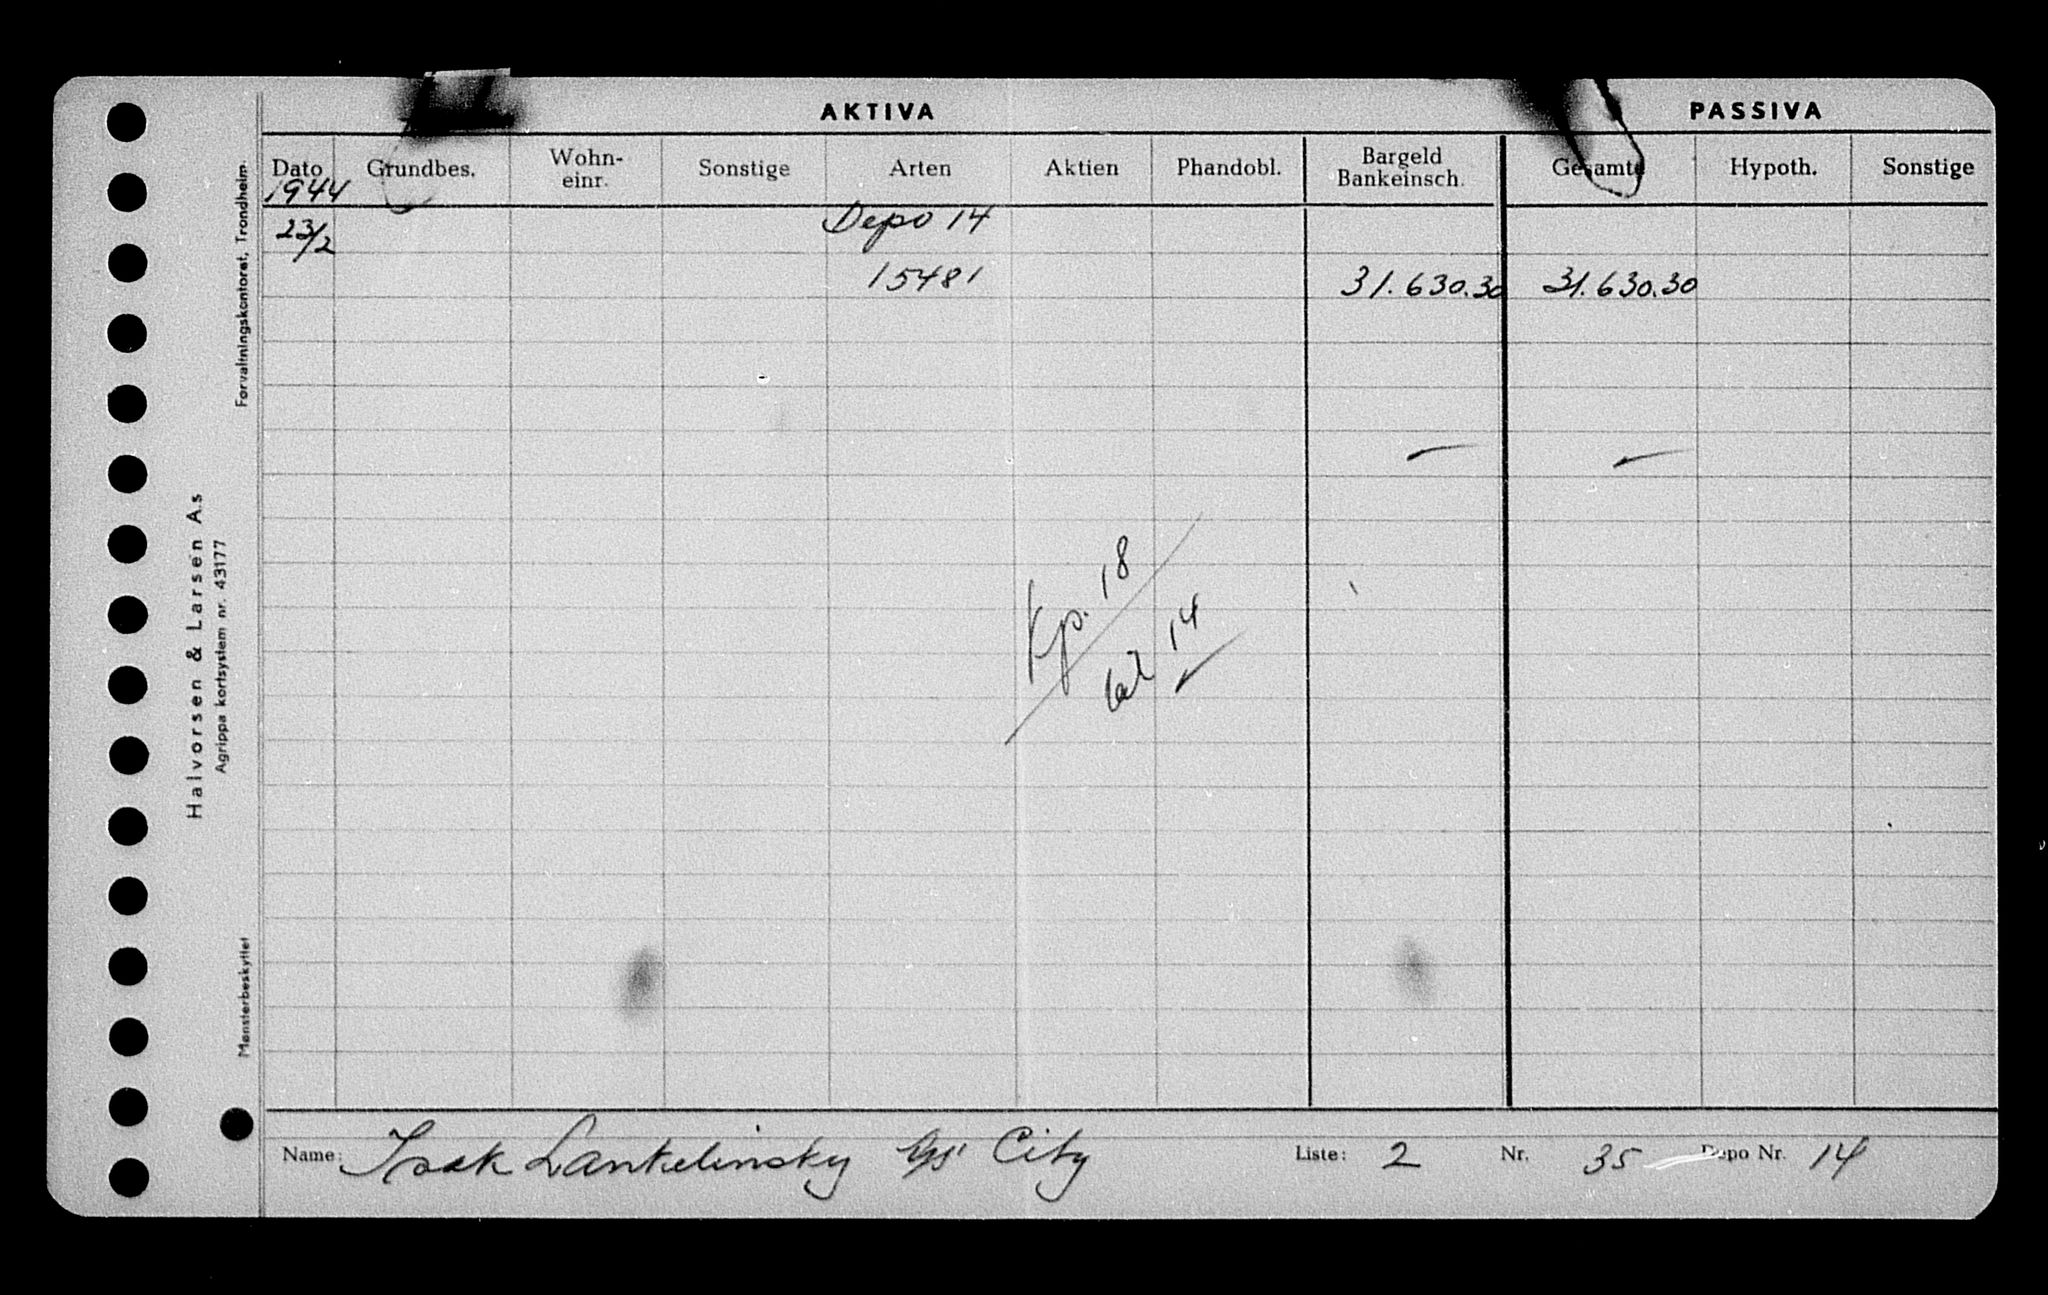 AKTIVA PASSIVA
Dato Grundbes. Wohn-einr. Sonstige Arten Aktien Phandobl. Bargeld Bankeinsch. Gesamte Hypoth. Sonstige
1944
23/2 Depo 14
15481 31.630.30 31.630.30
Kp. 18
bil 14
Name: Isak Lankelinsky City Liste: 2 Nr. 35 Depo Nr. 14
Forvaltningskontoret, Trondheim.
Halvorsen & Larsen A.s
Agrippa kortsystem nr. 43177
Mønsterbeskyttet